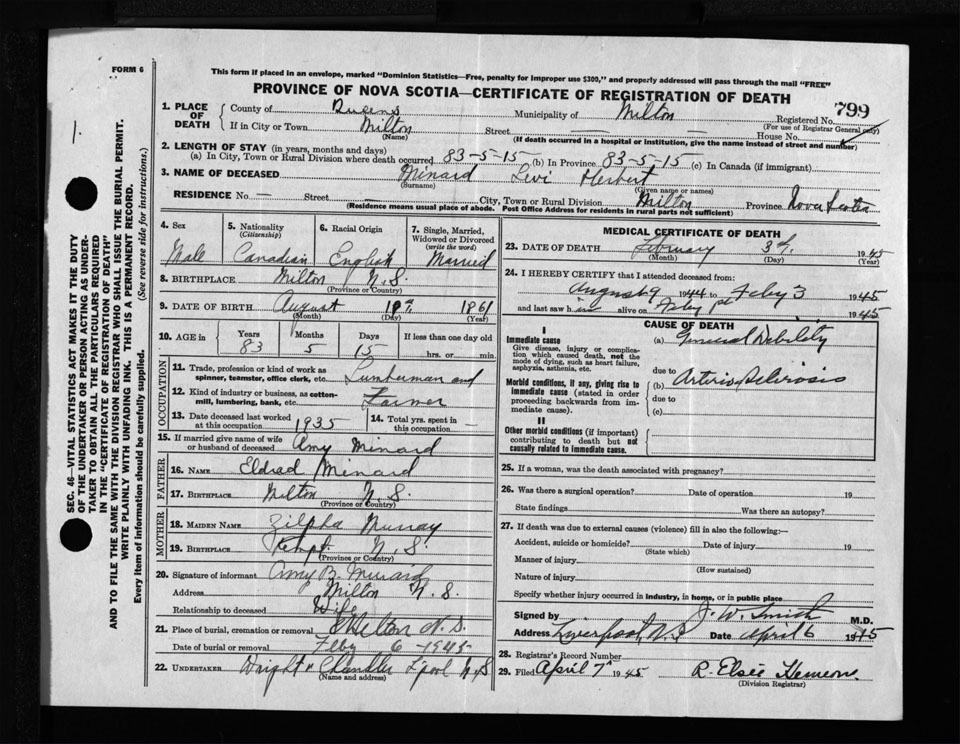 FORM 6
This form if placed in an envelope, marked "Dominion Statistics—Free, penalty for improper use $300," and properly addressed will pass through the mail "FREE"
PROVINCE OF NOVA SCOTIA—CERTIFICATE OF REGISTRATION OF DEATH
1. PLACE OF DEATH
County of Queens Municipality of Milton Registered No. 799
(For use of Registrar General only)
If in City or Town Milton Street — House No. —
(Name) (If death occurred in a hospital or institution, give the name instead of street and number)
2. LENGTH OF STAY (in years, months and days)
(a) In City, Town or Rural Division where death occurred 83-5-15 (b) In Province 83-5-15 (c) In Canada (if immigrant)
3. NAME OF DECEASED Minard Levi Herbert
(Surname) (Given name or names)
RESIDENCE No. — Street — City, Town or Rural Division Milton Province Nova Scotia
(Residence means usual place of abode. Post Office Address for residents in rural parts not sufficient)
4. Sex Male
5. Nationality (Citizenship) Canadian
6. Racial Origin English
7. Single, Married, Widowed or Divorced (write the word) Married
8. BIRTHPLACE Milton N.S.
(Province or Country)
9. DATE OF BIRTH August 1861
(Month) (Day) (Year)
10. AGE in Years 83 Months 5 Days 15 If less than one day old hrs. or min.
OCCUPATION
11. Trade, profession or kind of work as spinner, teamster, office clerk, etc. Lumberman and
12. Kind of industry or business, as cotton-mill, lumbering, bank, etc. Farmer
13. Date deceased last worked at this occupation 1935
14. Total yrs. spent in this occupation —
15. If married give name of wife or husband of deceased Amy Minard
FATHER
16. NAME Eldad Minard
17. BIRTHPLACE Milton N.S.
(Province or Country)
MOTHER
18. MAIDEN NAME Zilpha Murray
19. BIRTHPLACE Kempt N.S.
(Province or Country)
20. Signature of informant Amy B. Minard
Address Milton N.S.
Relationship to deceased Wife
21. Place of burial, cremation or removal Milton N.S.
Date of burial or removal Feby 6 1945
22. UNDERTAKER Wright & Chandler L'pool N.S
(Name and address)
MEDICAL CERTIFICATE OF DEATH
23. DATE OF DEATH February 3d, 1945
(Month) (Day) (Year)
24. I HEREBY CERTIFY that I attended deceased from:
August 9 1944 to Feby 3 1945
and last saw h im alive on Feby 1st 1945
CAUSE OF DEATH
I
Immediate cause
Give disease, injury or complication which caused death, not the mode of dying, such as heart failure, asphyxia, asthenia, etc.
(a) General Debility
due to
Morbid conditions, if any, giving rise to immediate cause (stated in order proceeding backwards from immediate cause).
(b) Arterio Sclerosis
due to
(c)
II
Other morbid conditions (if important) contributing to death but not causally related to immediate cause.
25. If a woman, was the death associated with pregnancy?
26. Was there a surgical operation? Date of operation 19
State findings Was there an autopsy?
27. If death was due to external causes (violence) fill in also the following:—
Accident, suicide or homicide? Date of injury 19
(State which)
Manner of injury
(How sustained)
Nature of injury
Specify whether injury occurred in industry, in home, or in public place
Signed by J. W. Smith M.D.
Address Liverpool, N.S Date April 6 1945
28. Registrar's Record Number
29. Filed April 7 1945 R. Elsie Hemeon
(Division Registrar)
1.
SEC. 46—VITAL STATISTICS ACT MAKES IT THE DUTY
OF THE UNDERTAKER OR PERSON ACTING AS UNDER-
TAKER TO OBTAIN ALL THE PARTICULARS REQUIRED
IN THE "CERTIFICATE OF REGISTRATION OF DEATH"
AND TO FILE THE SAME WITH THE DIVISION REGISTRAR WHO SHALL ISSUE THE BURIAL PERMIT.
WRITE PLAINLY WITH UNFADING INK. THIS IS A PERMANENT RECORD.
Every item of information should be carefully supplied. (See reverse side for instructions.)